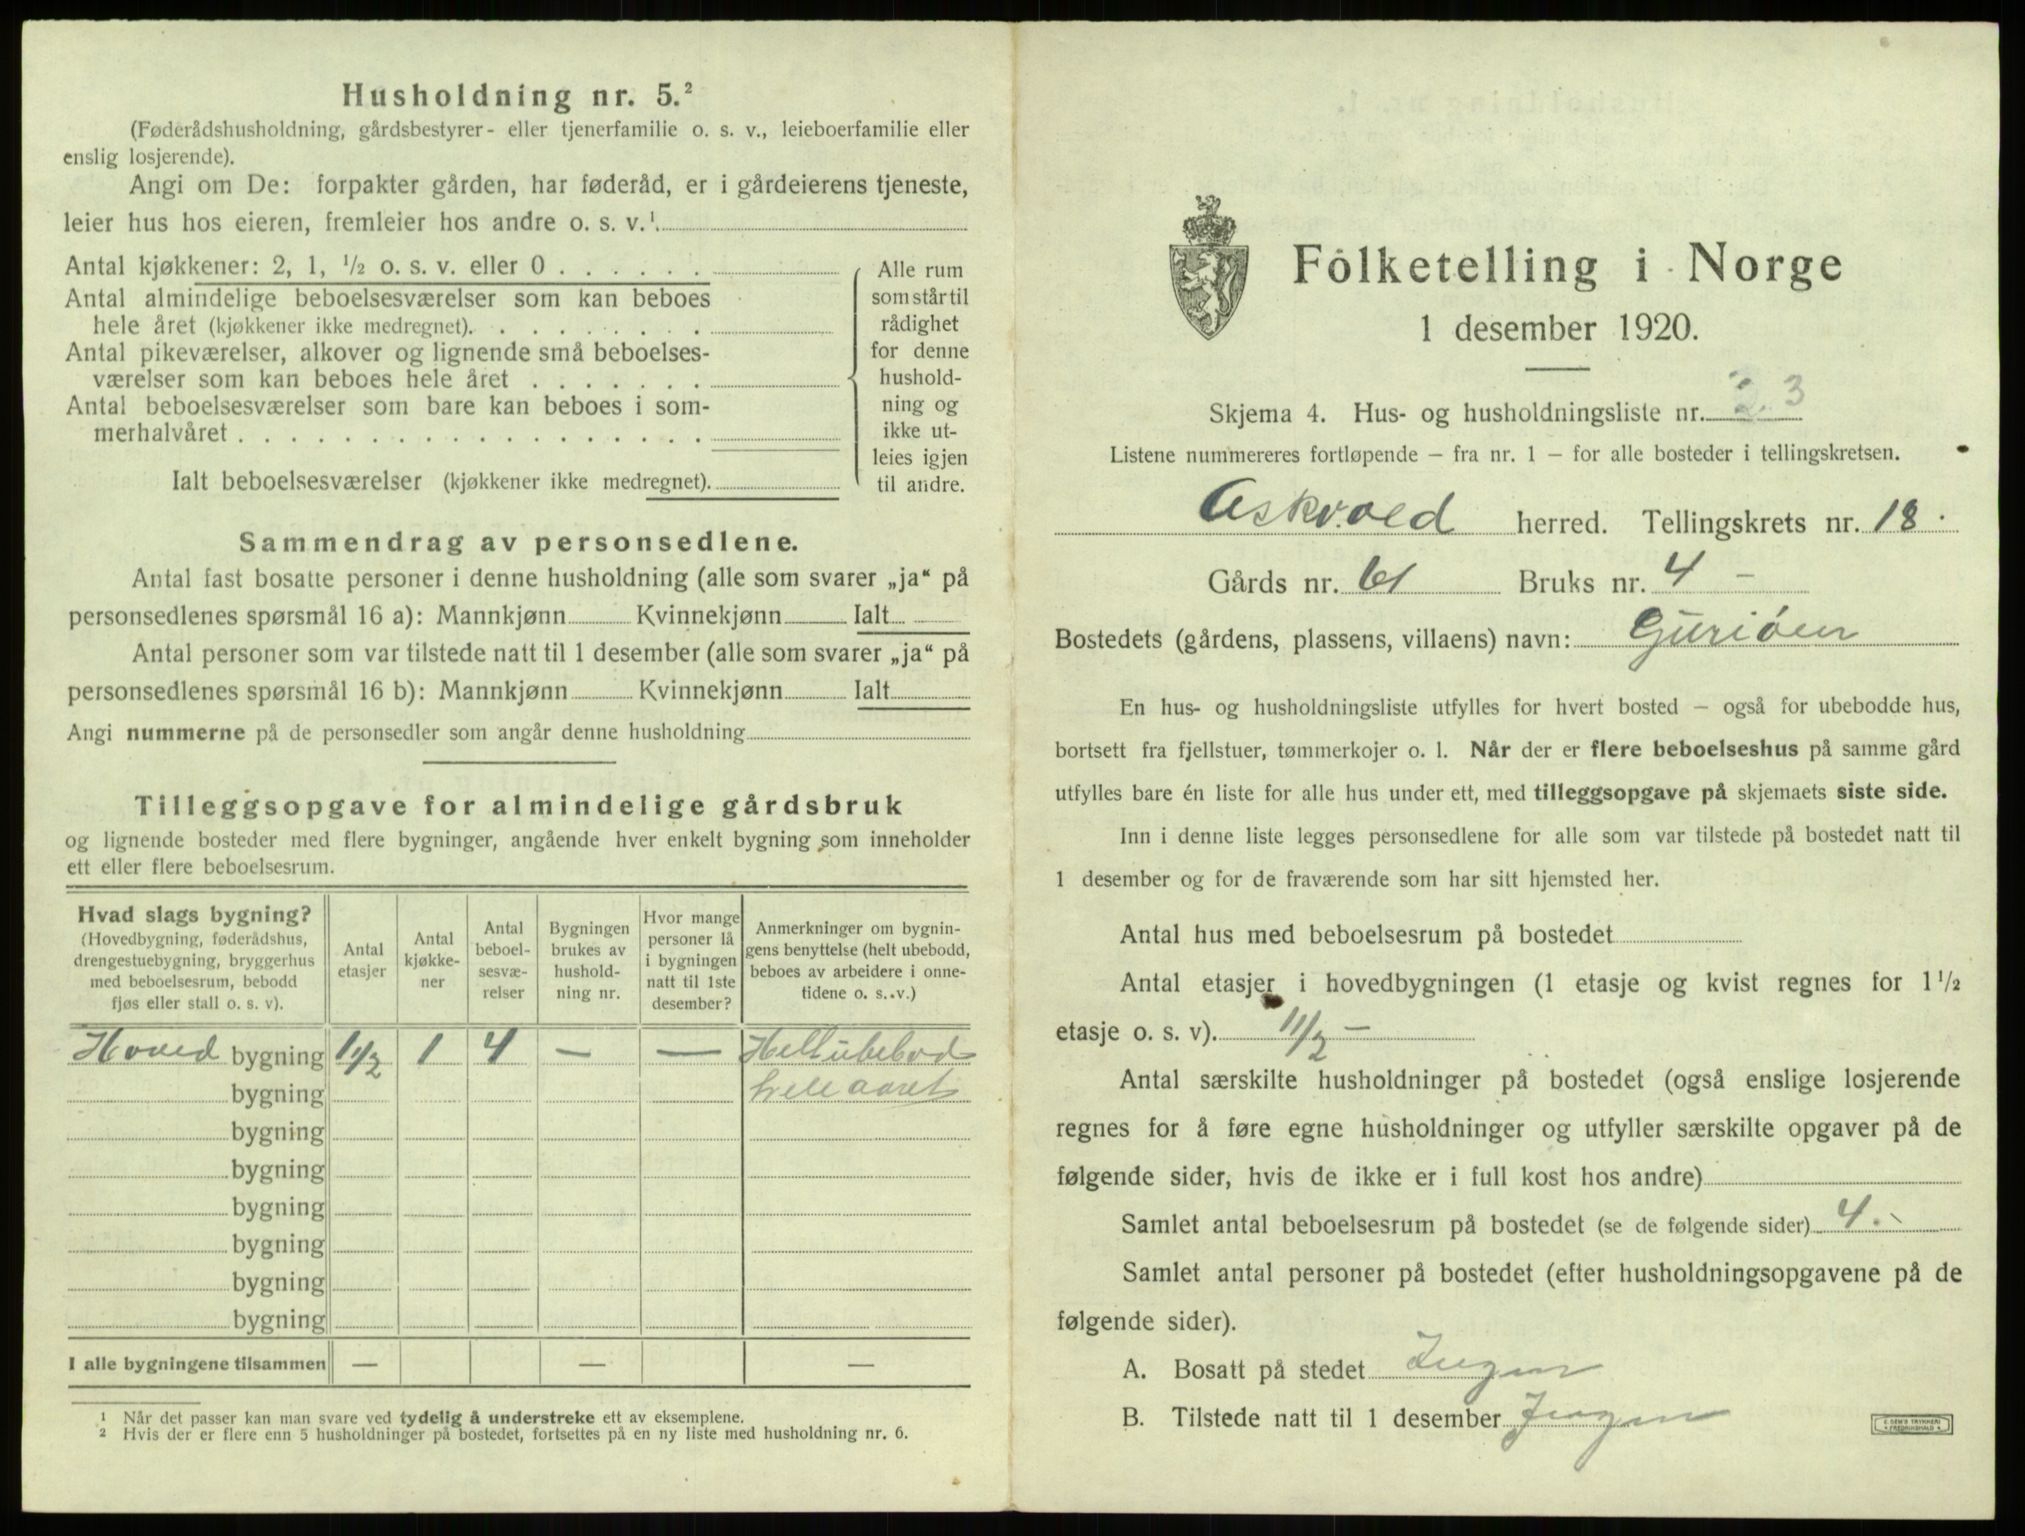 Husholdning nr. 5.²
(Føderådshusholdning, gårdsbestyrer- eller tjenerfamilie o. s. v., leieboerfamilie eller
enslig losjerende).
Angi om De: forpakter gården, har føderåd, er i gårdeierens tjeneste,
leier hus hos eieren, fremleier hos andre o. s. v.¹
Antal kjøkkener: 2, 1, ½ o. s. v. eller 0 . . . . . .
Antal almindelige beboelsesværelser som kan beboes
hele året (kjøkkener ikke medregnet). . . . . . . . .
Antal pikeværelser, alkover og lignende små beboelses-
værelser som kan beboes hele året . . . . . . .
Antal beboelsesværelser som bare kan beboes i som-
merhalvåret . . . . . . . . . . . . . . . . . .
Ialt beboelsesværelser (kjøkkener ikke medregnet).
Alle rum
som står til
rådighet
for denne
hushold-
ning og
ikke ut-
leies igjen
til andre.
Sammendrag av personsedlene.
Antal fast bosatte personer i denne husholdning (alle som svarer „ja“ på
personsedlenes spørsmål 16 a): Mannkjønn Kvinnekjønn Ialt
Antal personer som var tilstede natt til 1 desember (alle som svarer „ja“ på
personsedlenes spørsmål 16 b): Mannkjønn Kvinnekjønn Ialt
Angi nummerne på de personsedler som angår denne husholdning
Tilleggsopgave for almindelige gårdsbruk
og lignende bosteder med flere bygninger, angående hver enkelt bygning som inneholder
ett eller flere beboelsesrum.
Hvad slags bygning?
(Hovedbygning, føderådshus,
drengestuebygning, bryggerhus
med beboelsesrum, bebodd
fjøs eller stall o. s. v).
Antal
etasjer
Antal
kjøkke-
ner
Antal
beboel-
sesvæ-
relser
Bygningen
brukes av
hushold-
ning nr.
Hvor mange
personer lå
i bygningen
natt til 1ste
desember?
Anmerkninger om bygnin-
gens benyttelse (helt ubebodd,
beboes av arbeidere i onne-
tidene o. s. v.)
Hoved bygning 1 1/2 1 4 — — Helt ubebod
bygning hele aaret
bygning
bygning
bygning
bygning
bygning
bygning
I alle bygningene tilsammen — — —
¹ Når det passer kan man svare ved tydelig å understreke ett av eksemplene.
² Hvis der er flere enn 5 husholdninger på bostedet, fortsettes på en ny liste med husholdning nr. 6.
Folketelling i Norge
1 desember 1920.
Skjema 4. Hus- og husholdningsliste nr. 3
Listene nummereres fortløpende – fra nr. 1 – for alle bosteder i tellingskretsen.
Askvold herred. Tellingskrets nr. 18.
Gårds nr. 61 Bruks nr. 4 –
Bostedets (gårdens, plassens, villaens) navn: Guriøen
En hus- og husholdningsliste utfylles for hvert bosted – også for ubebodde hus,
bortsett fra fjellstuer, tømmerkojer o. l. Når der er flere beboelseshus på samme gård
utfylles bare én liste for alle hus under ett, med tilleggsopgave på skjemaets siste side.
Inn i denne liste legges personsedlene for alle som var tilstede på bostedet natt til
1 desember og for de fraværende som har sitt hjemsted her.
Antal hus med beboelsesrum på bostedet
Antal etasjer i hovedbygningen (1 etasje og kvist regnes for 1 ½
etasje o. s. v). 1 1/2 –
Antal særskilte husholdninger på bostedet (også enslige losjerende
regnes for å føre egne husholdninger og utfyller særskilte opgaver på de
følgende sider, hvis de ikke er i full kost hos andre)
Samlet antal beboelsesrum på bostedet (se de følgende sider) 4.
Samlet antal personer på bostedet (efter husholdningsopgavene på de
følgende sider).
A. Bosatt på stedet Ingen
B. Tilstede natt til 1 desember Ingen